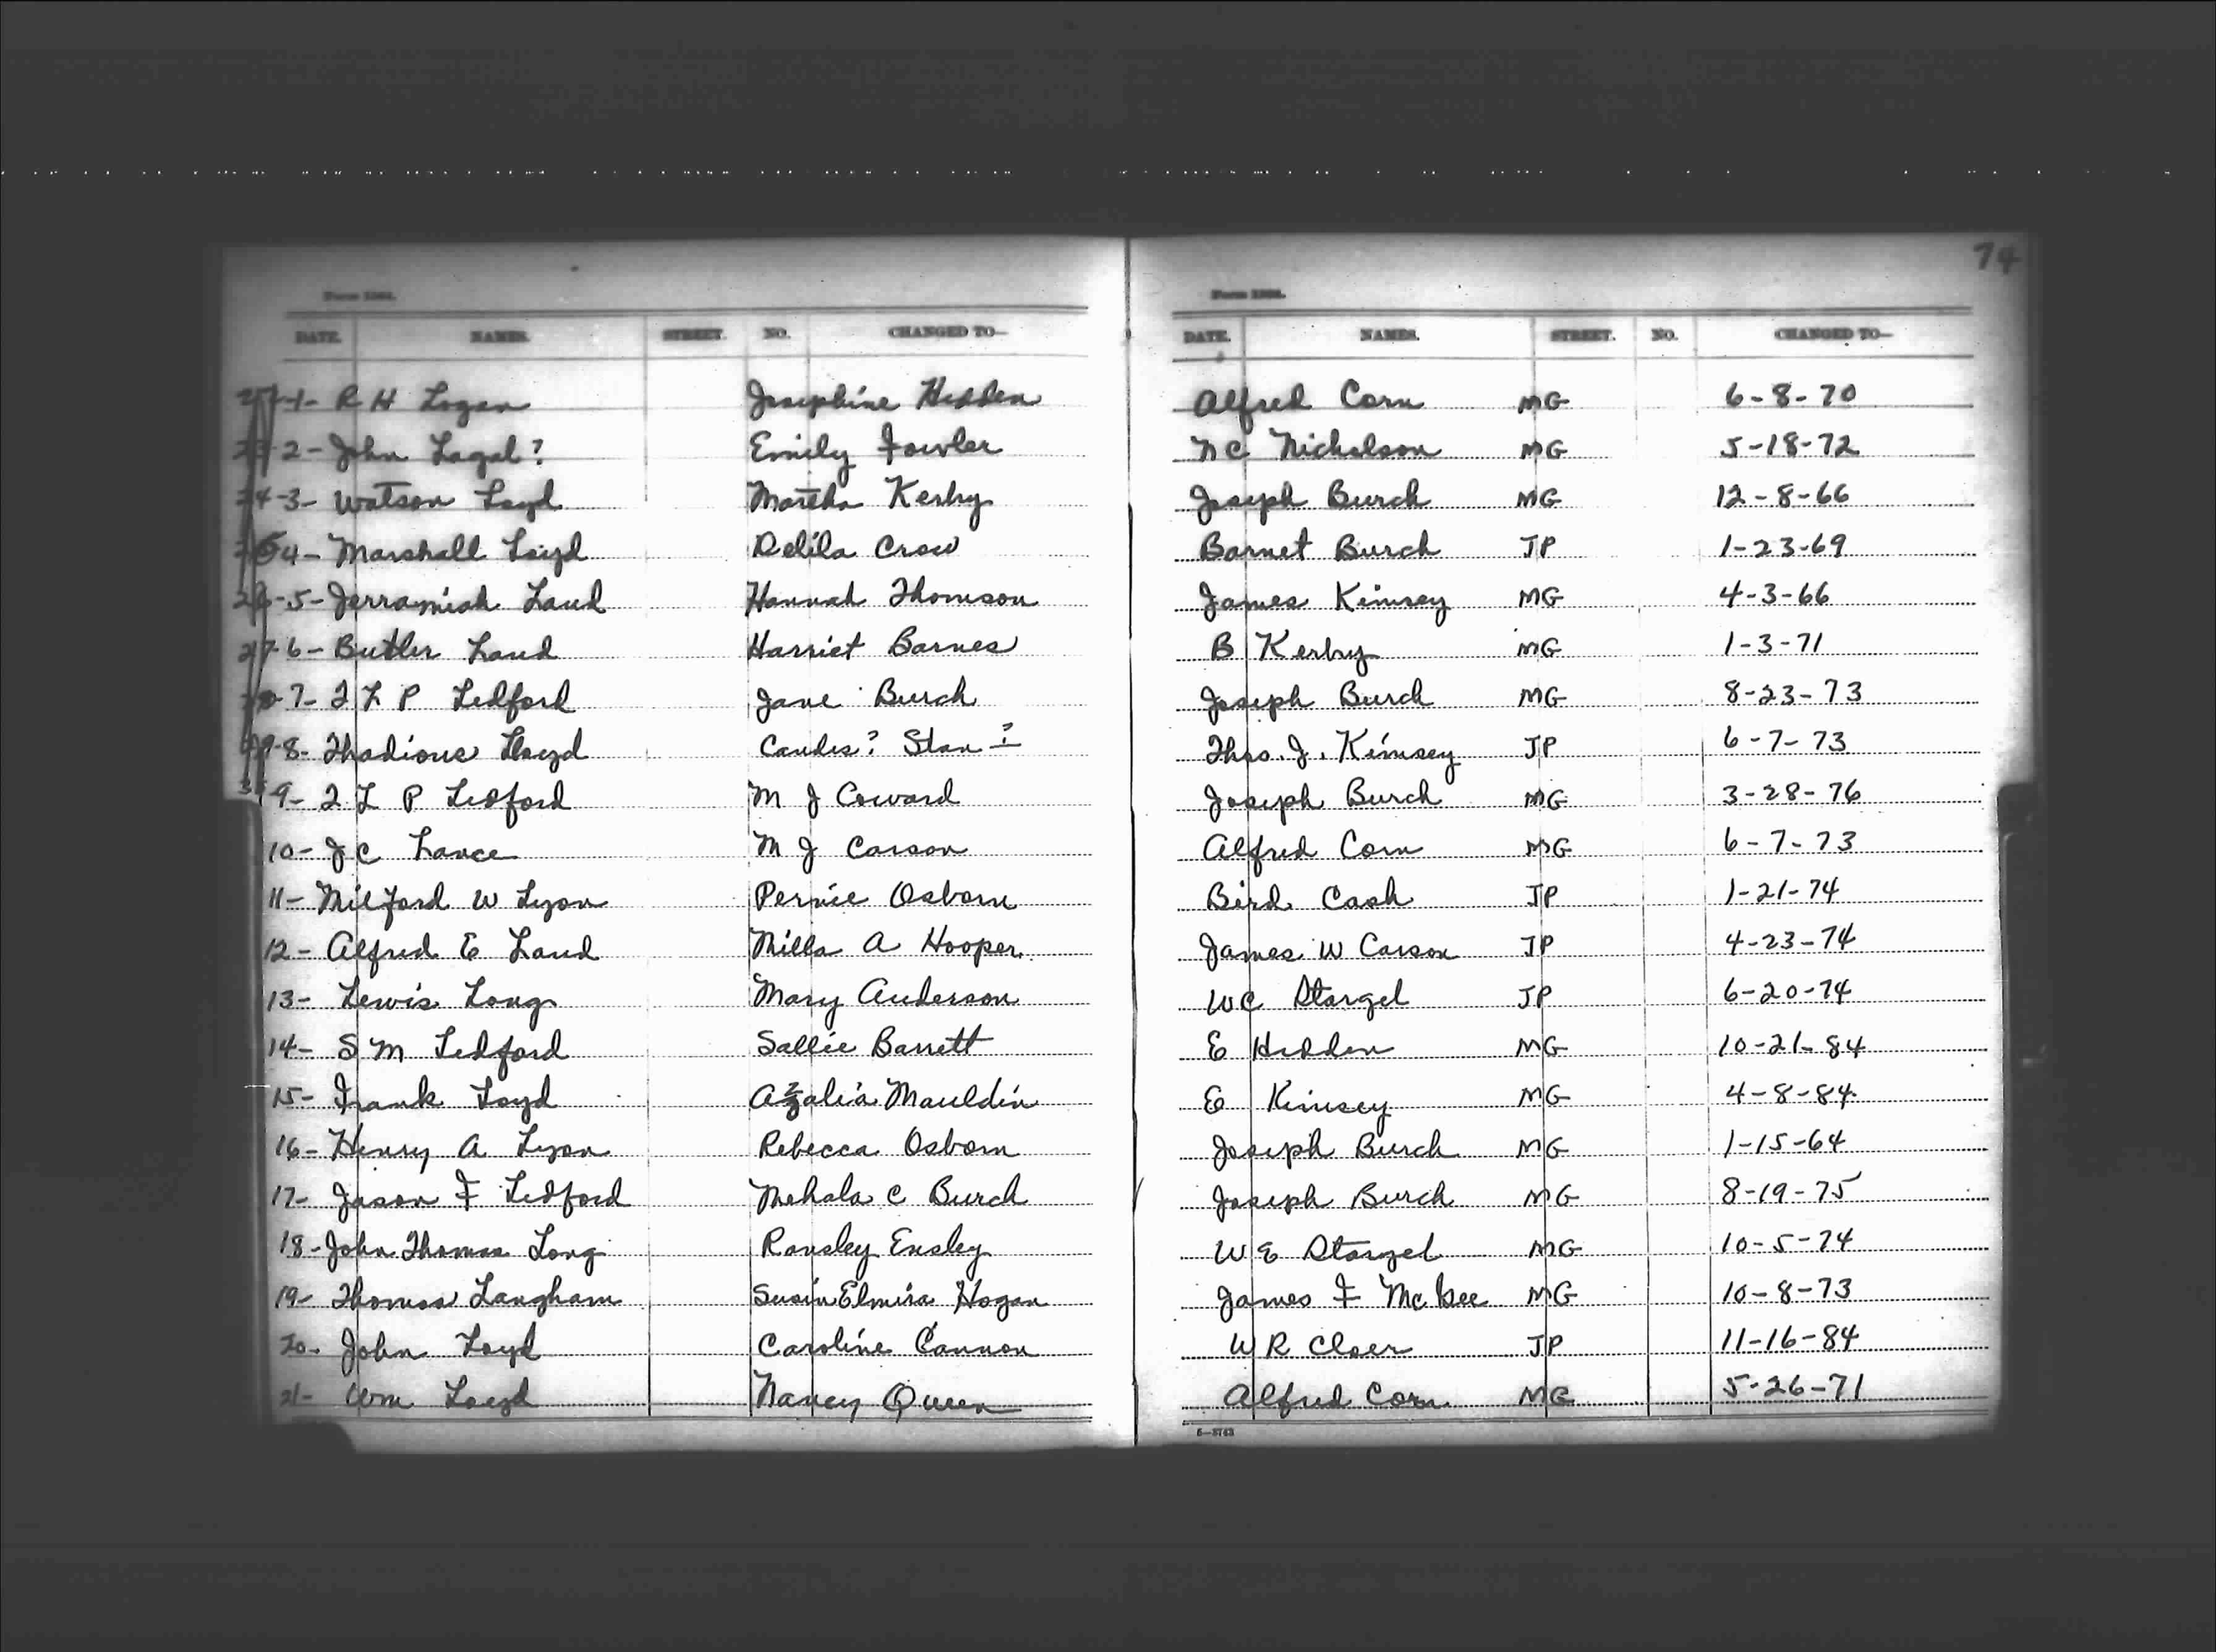 74
Form 1502. Form 1502.
DATE. NAMES. STREET. NO. CHANGED TO— DATE. NAMES. STREET. NO. CHANGED TO—
1- R H Logan Josephine Hedden Alfred Corn MG 6-8-70
2- John Lagal? Emily Fowler N C Nicholson MG 5-18-72
24-3- Watson Loyd Martha Kerby Joseph Burch MG 12-8-66
4- Marshall Loyd Delila Crow Barnet Burch JP 1-23-69
26-5- Jerramiah Laud Hannah Thomson James Kimsey MG 4-3-66
27-6- Butler Laud Harriet Barnes B Kerby MG 1-3-71
7- I L P Ledford Jane Burch Joseph Burch MG 8-23-73
8- Thadious Lloyd Candis? Stan ? Thos. J. Kimsey JP 6-7-73
9- I L P Ledford M J Coward Joseph Burch MG 3-28-76
10- J C Lance M J Carson Alfred Corn MG 6-7-73
11- Milford W Lyon Pernie Osborn Bird Cash JP 1-21-74
12- Alfred E Laud Milla A Hooper James W Carson JP 4-23-74
13- Lewis Long Mary Anderson W C Stargel JP 6-20-74
14- S M Ledford Sallie Barrett E Hedden MG 10-21-84
15- Frank Loyd Azalia Mauldin E Kimsey MG 4-8-84
16- Henry A Lyon Rebecca Osborn Joseph Burch MG 1-15-64
17- Jason F Ledford Mehala C Burch Joseph Burch MG 8-19-75
18- John Thomas Long Ransley Ensley W E Stargel MG 10-5-74
19- Thomas Langham Susin Elmira Hogan James F McGee MG 10-8-73
20. John Loyd Caroline Cannon W R Cloer JP 11-16-84
21- Wm Loyd Nancy Queen Alfred Corn MG 5-26-71
6—3743